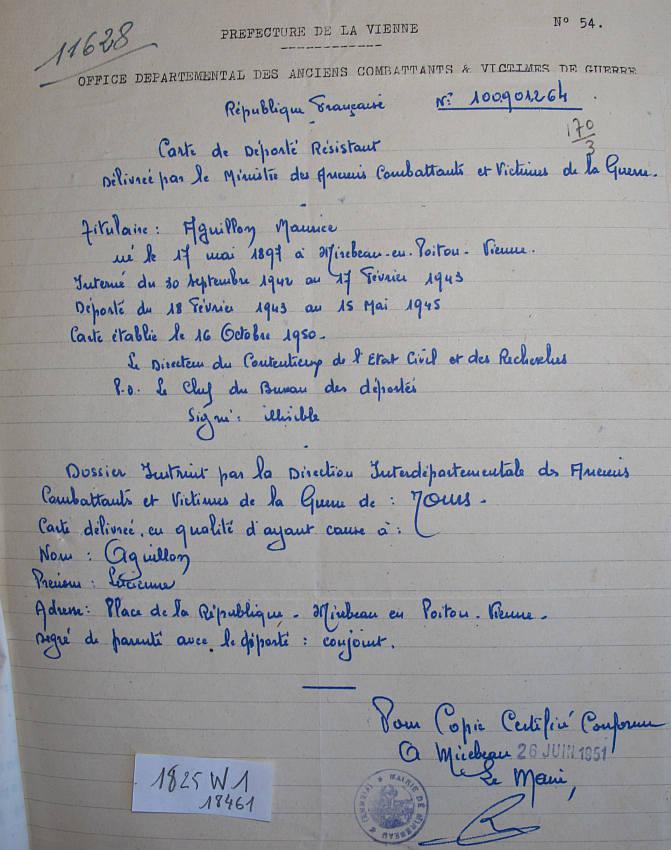 11628
PREFECTURE DE LA VIENNE
N° 54.
OFFICE DEPARTEMENTAL DES ANCIENS COMBATTANTS & VICTIMES DE GUERRE
République Française
N° 100901264
170
3
Carte de Déporté Résistant
Délivrée par le Ministre des Anciens Combattants et Victimes de la Guerre.
Titulaire : Aguillon Maurice
né le 17 mai 1897 à Mirebeau-en-Poitou - Vienne.
Interné du 30 septembre 1942 au 17 Février 1943
Déporté du 18 Février 1943 au 15 Mai 1945
Carte établie le 16 Octobre 1950.
Le Directeur du Contentieux de l'Etat Civil et des Recherches
P.O. Le Chef du Bureau des déportés
Signé : illisible
Dossier Instruit par la Direction Interdépartementale des Anciens
Combattants et Victimes de la Guerre de : Tours.
Carte délivrée en qualité d'ayant cause à :
Nom : Aguillon
Prénom : Lucienne
Adresse : Place de la République - Mirebeau en Poitou - Vienne.
Degré de parenté avec le déporté : conjoint.
Pour Copie Certifié Conforme
A Mirebeau 26 JUIN 1951
Le Maire,
MAIRIE DE MIREBEAU
1825 W 1
18461